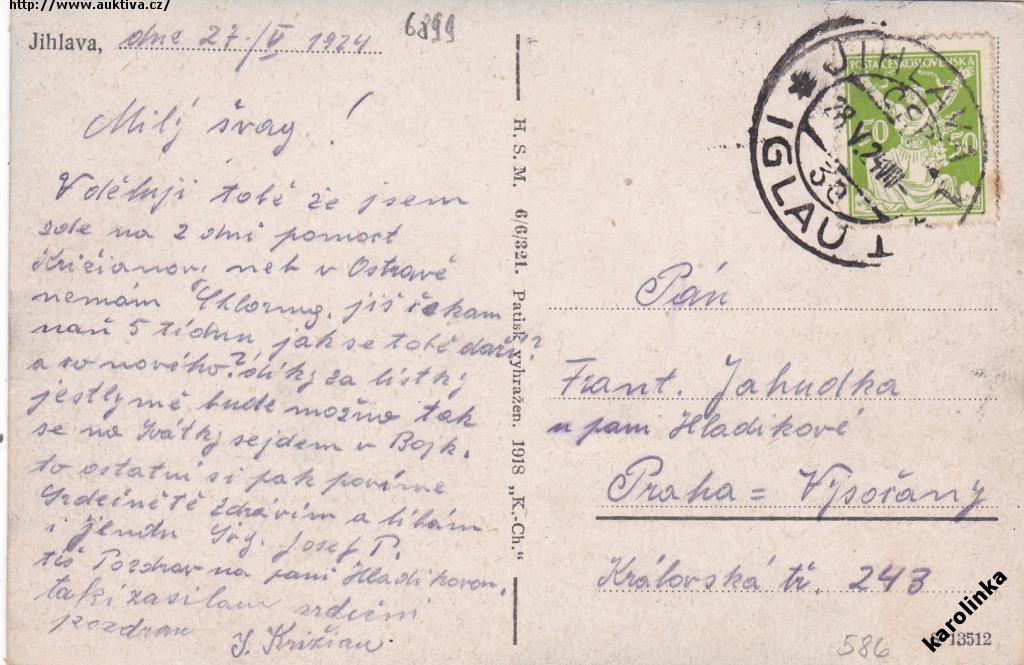 http://www.auktiva.cz/
6899
Jihlava, dne 27./V 1924
Milý švag.!
Vděluji tobě že jsem
zde na 2 dni pomoct
Križianov, neb v Ostravě
nemám jiš čekam
naň 5 tídnu jak se tobě daří?
a co nového? díky za lístky
jestly mě bude možno tak
se na Svátky sejdem v Bojk.
to ostatní si pak povíme
Srdečnětě zdravím a líbám
i Jendu Švg. Josef P.
tiš Pozdrav na pani Hladikovou.
taki zasilam srdečni
pozdrav
J. Križian
H. S. M. 6/6/321. Patisk vyhražen. 1918 „K.-Ch."
POŠTA ČESKOSLOVENSKA
50 50
JIHLAVA 1
28.V.24
3a
IGLAU 1
Pán
Frant. Jahudka
u pani Hladikové
Praha = Vysočany
Královská tř. 243
586
13512
karolinka